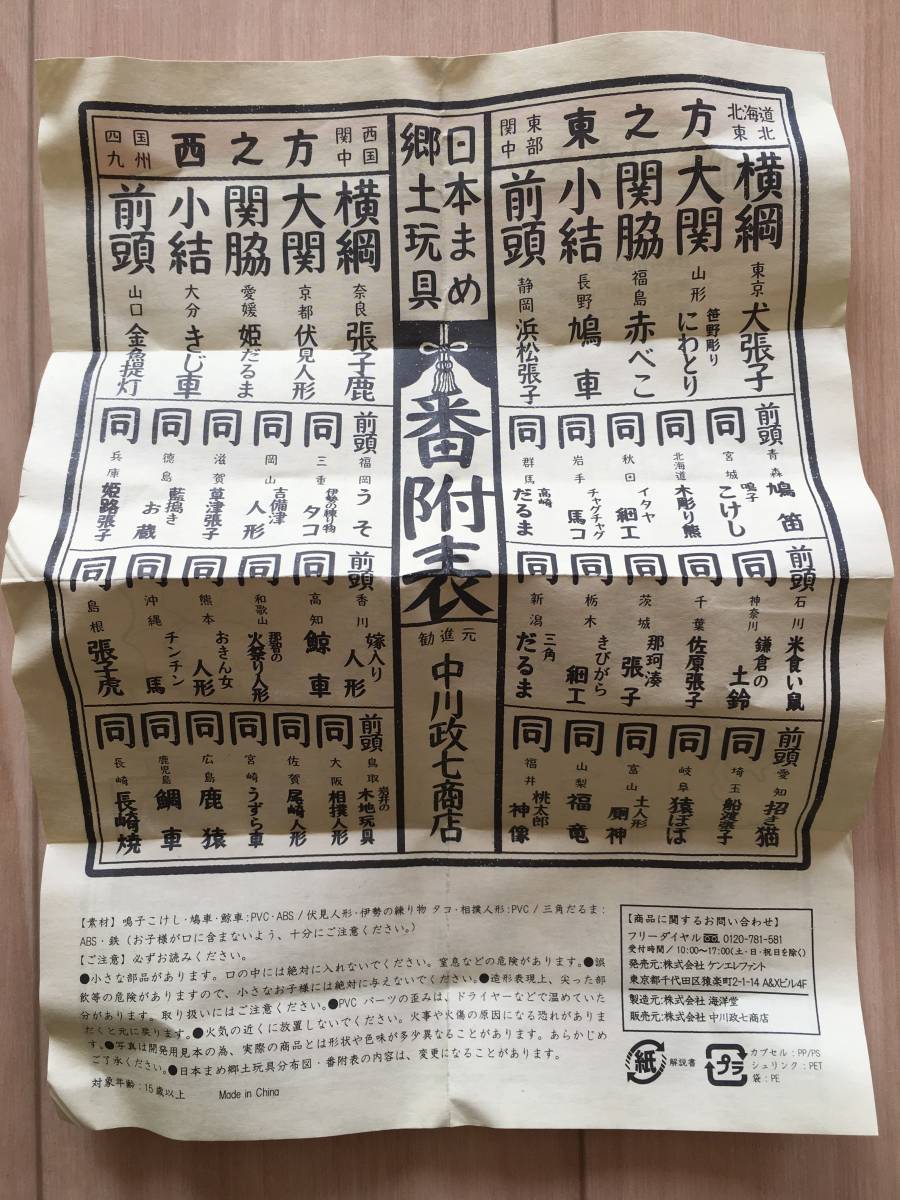 北海道
東北
東之方
関東
中部
横綱 東京 犬張子
大関 山形 笹野彫り にわとり
関脇 福島 赤べこ
小結 長野 鳩車
前頭 静岡 浜松張子
前頭 青森 鳩笛
同 宮城 鳴子 こけし
同 北海道 木彫り熊
同 秋田 イタヤ 細工
同 岩手 チャグチャグ 馬コ
同 群馬 高崎 だるま
前頭 石川 米食い鼠
同 神奈川 鎌倉の 土鈴
同 千葉 佐原張子
同 茨城 那珂湊 張子
同 栃木 きびがら 細工
同 新潟 三角 だるま
前頭 愛知 招き猫
同 埼玉 船渡張子
同 岐阜 猿ぼぼ
同 富山 土人形 厠神
同 山梨 福竜
同 福井 桃太郎 神像
日本まめ
郷土玩具
番附表
勧進元
中川政七商店
西国
関中
西之方
四国
九州
横綱 奈良 張子鹿
大関 京都 伏見人形
関脇 愛媛 姫だるま
小結 大分 きじ車
前頭 山口 金魚提灯
前頭 福岡 うそ
同 三重 伊勢の練り物 タコ
同 岡山 吉備津 人形
同 滋賀 草津張子
同 徳島 藍搗き お蔵
同 兵庫 姫路張子
前頭 香川 嫁入り 人形
同 高知 鯨車
同 和歌山 那智の 火祭り人形
同 熊本 おきん女 人形
同 沖縄 チンチン 馬
同 島根 張子虎
前頭 鳥取 岩井の 木地玩具
同 大阪 相撲人形
同 佐賀 尾崎人形
同 宮崎 うずら車
同 広島 鹿猿
同 鹿児島 鯛車
同 長崎 長崎焼
【素材】鳴子こけし・鳩車・鯨車:PVC・ABS / 伏見人形・伊勢の練り物 タコ・相撲人形:PVC / 三角だるま:
ABS・鉄（お子様が口に含まないよう、十分にご注意ください。）
【ご注意】必ずお読みください。
●小さな部品があります。口の中には絶対に入れないでください。窒息などの危険があります。●誤
飲等の危険がありますので、小さなお子様には絶対に与えないでください。●造形表現上、尖った部
分があります。取り扱いにはご注意ください。●PVC パーツの歪みは、ドライヤーなどで温めていた
だくと元に戻ります。●火気の近くに放置しないでください。火事や火傷の原因になる恐れがありま
す。●写真は開発用見本の為、実際の商品とは形状や色味が多少異なることがあります。あらかじめ
ご了承ください。●日本まめ郷土玩具分布図・番附表の内容は、変更になることがあります。
対象年齢:15歳以上 Made in China
【商品に関するお問い合わせ】
フリーダイヤル 0120-781-581
受付時間 / 10:00〜17:00(土・日・祝日を除く)
発売元:株式会社 ケンエレファント
東京都千代田区猿楽町2-1-14 A&Xビル4F
製造元:株式会社 海洋堂
販売元:株式会社 中川政七商店
紙 解説書
プラ
カプセル:PP/PS
シュリンク:PET
袋:PE